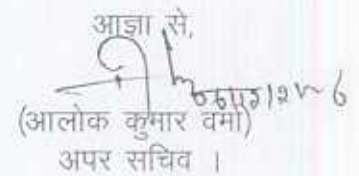 आज्ञा से,
(आलोक कुमार वर्मा)
अपर सचिव ।